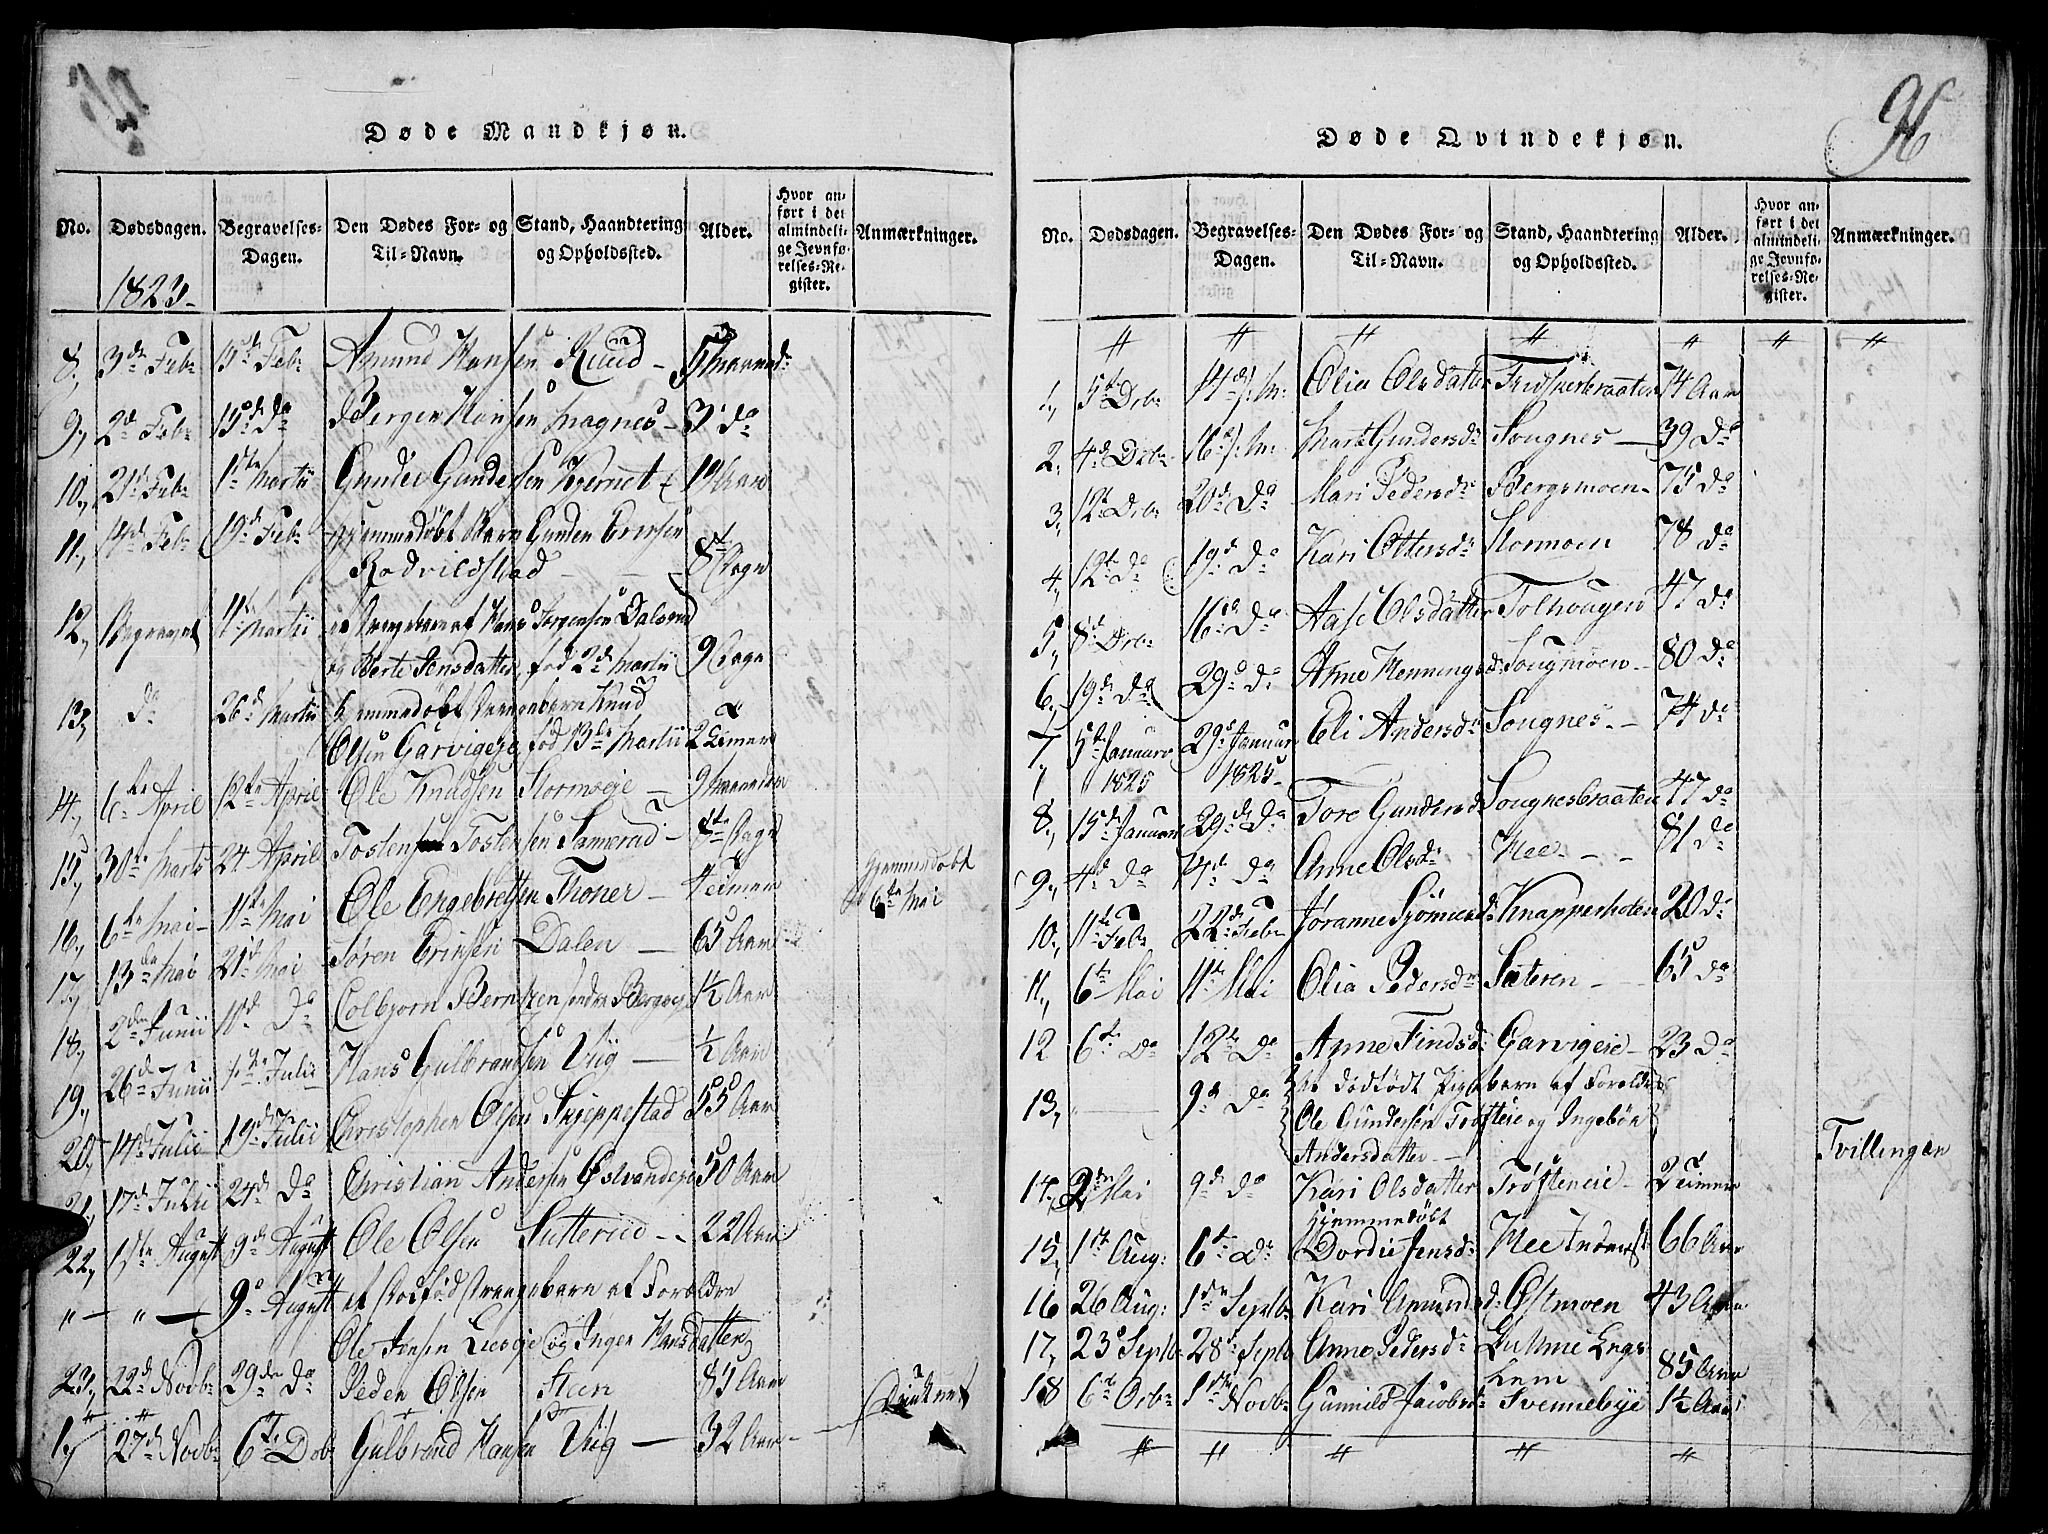 96
Døde Mandkjøn.
No. Dødsdagen. Begravelses-Dagen. Den Dødes For- og Til-Navn. Stand, Haandtering og Opholdssted. Alder. Hvor anført i det almindelige Jevnførelses-Register. Anmærkninger.
8, 3de Febr 15de Febr Amund Hansen Ruud - 5 Maaned
9, 2de Febr 15de Do Bergen Hansen Sragnes - 3 Do
10, 21 Febr 1te Martii Gunder Gundersen Kjernet 19 Aar
11, 14de Febr 19de Febr Hjemmedøbt Barn Gunder Evensen
Rodvildstad - 8te Dage
12, Begravet 11te Martii et Drengebarn af Hans Jørgensen Dalsrud
og Berte Jensdatter, fød 2de Martii 9 Dage
13, do 26de Martii hjemmedøbt Drengebarn Knud
Olsen Garvigeje fød 13de Martii 2 Timer
14, 6te April 12te April Ole Knudsen Stormoeje - 9 Maaneder
15, 30te Marts 24 April Tosten Tostensen Sameraad - 8te Dage
16, 6te Mai - 11te Mai Ole Engebretsen Thoner - Timer Hjemmedøbt
6te Mai
17, 13de Mai 21de Mai Søren Erinsen Dalen - 65 Aar
18, 2den Junii 11de Do Colbjorn Berntzen søndre Bergseje 1½ Aar
19, 26de Junii 1te Julii Hans Gulbrandsen Viig - ½ Aar
20, 14de Julii 19de Julii Christophen Olsen Skjeppestad 55 Aar
21, 17de Julii 24de Do Christian Andersen Østvandeje 50 Aar
22, 1ste August 9de August Ole Olsen Sutterud - - 22 Aar
" - " - 9de August et Dødfød Drengebarn af Forældre
Ole Jensen Lucseje og Inger Hansdatter
23, 22de Novbr 29de Do Peder Olsen Steen 81 Aar
1, 27de Novbr 6te Dcbr Gulbrand Hansen Viig - 32 Aar - Druknet
Døde Qvindekjøn.
No. Dødsdagen. Begravelses-Dagen. Den Dødes For- og Til-Navn. Stand, Haandtering og Opholdssted. Alder. Hvor anført i det almindelige Jevnførelses-Register. Anmærkninger.
" " " " " " "
1, 5te Dcbr 14de s: M: Olia Olsdatter 74 Aar
2, 4de Dcbr 16de s: M: Marte Gundersdr Sougnes - 39 Do
3, 12te Dcbr 20de Do Mari Pedersdr Bergsmoen - 75 Do
4, 12te Do 19de Do Kari Ottersdr Stormoen 78 Do
5, 8de Dcbr 16de Do Aase Olsdatter Tolhougen 47 Do
6, 19de Do 29de Do Anne Henningsd: Sougmoen - 80 Do
7, 5te Januar 29de Januar Eli Andersdr Sougnes - - 74 Do
1825 1825
8, 15de Januar 29de Do Tore Gundersd Sougnesbraaten 47 Do
9, 4de Do 14de Do Anne Olsdr Hee - - 81 Do
10, 11te Febr 22de Febr Jøranne Sjømunds Knapperholen 20 Do
11, 6te Mai 11te Mai Olia Pedersdr Sæteren - 65 Do
12 6te Do 12te Do Anne Findsd: Garvigeie - 23 Do
13, - 9de Do Et dødfødt Pigebarn af Forældre
Ole Gundersen Trøfteie og Ingebør
Andersdatter - Tvillinger
14, 2den Mai 9de Do Kari Olsdatter Trøfteneie - 2 Timer
Hjemmedøbt
15, 1te Aug: 6te Do Dordie Jensdr Hee Inderst 66 Aar
16 26 Aug: 1den Septbr Kari Amunds d: Østmoen 43 Aar
17, 23de Septbr 28de Septbr Anne Pedersdr Enges
Lem 85 Aar
18 6te Ocbr 1de Novbr Gunnild Jacobsdr Svennebye 1½ Aar
" " " " "